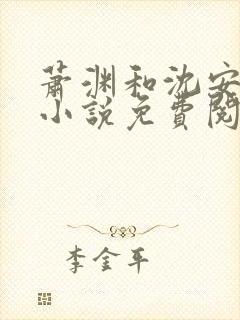 萧渊和沈安
小说免费阅
李金平